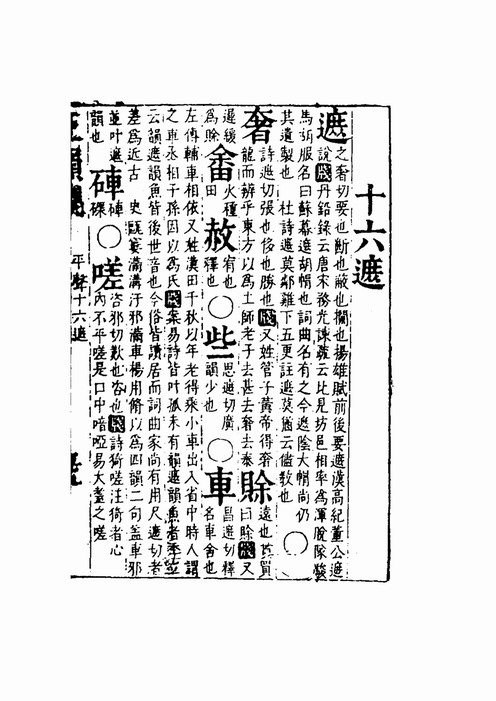 十六遮
遮之奢切要也斷也蔽也攔也揚雄賦前後要遮漢高紀董公遮
說箋丹鉛錄云唐宋務光諫疏云比見坊邑相率為渾脫隊駿
馬胡服名曰蘇幕遮胡帽也詞曲名有之今遮陰大帽尚仍
其遺製也 杜詩遮莫鄰雞下五更註遮莫猶云儘教也○
奢詩遮切張也侈也勝也箋又姓管子黃帝得奢
龍而辨乎東方以為土師老子去甚去奢去泰
賒遠也貰買
曰賒箋又
遲緩
為賒
畬火種
田
赦宥也
釋也
○些思遮切廣
韻少也
○車昌遮切釋
名車舍也
左傳輔車相依又姓漢田千秋以年老得乘小車出入省中時人謂
之車丞相子孫因以為氏箋案易詩皆叶孤未有韻遮韻魚者季立
云韻遮韻魚皆後世音也今俗皆讀居而詞曲家尚有用尺遮切者
差為近古 史甌窶滿溝汙邪滿車楊用脩以為四韻二句蓋車邪
並叶遮
韻也
硨硨
磲
○嗟咨邪切歎也咨也箋詩猗嗟注猗者心
內不平嗟是口中喑啞易大耋之嗟
平聲十六遮